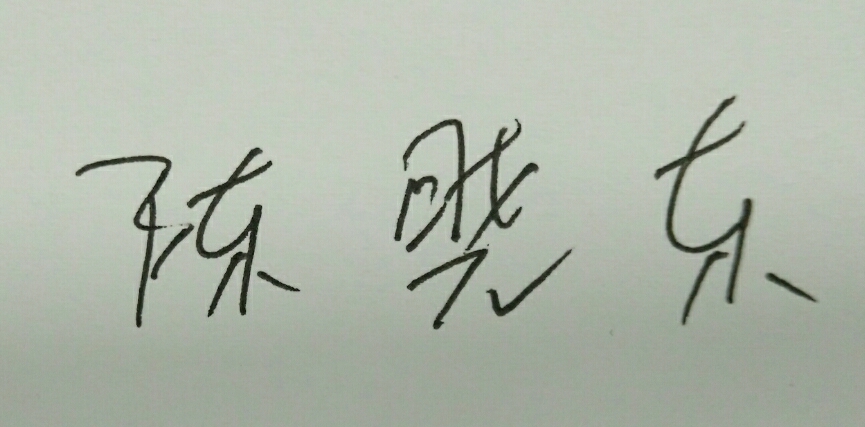 陈晓东